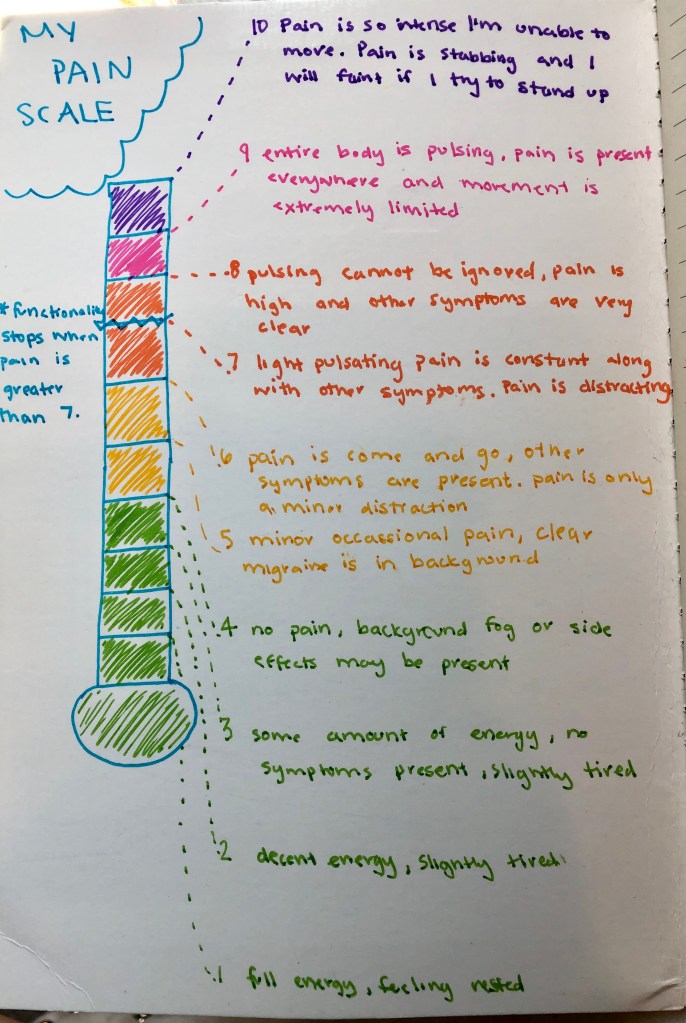 MY
PAIN
SCALE
10 Pain is so intense I'm unable to
move. Pain is stabbing and I
will faint if I try to stand up
9 entire body is pulsing, pain is present
everywhere and movement is
extremely limited
8 pulsing cannot be ignored, pain is
high and other symptoms are very
clear
* functionality
stops when
pain is
greater
than 7.
7 light pulsating pain is constant along
with other symptoms. Pain is distracting
6 pain is come and go, other
symptoms are present. pain is only
a minor distraction
5 minor occassional pain, clear
migraine is in background
4 no pain, background fog or side
effects may be present
3 some amount of energy, no
symptoms present, slightly tired
2 decent energy, slightly tired
1 full energy, feeling rested